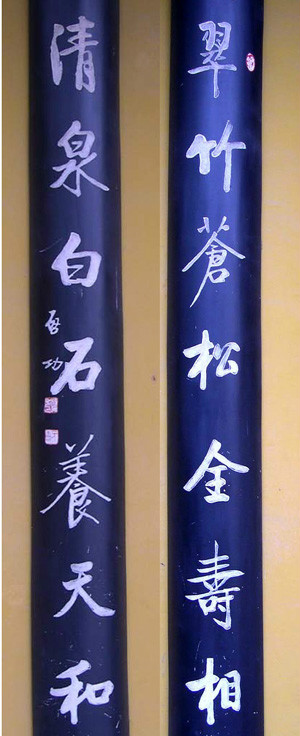 翠竹蒼松全壽相
清泉白石養天和
啓功